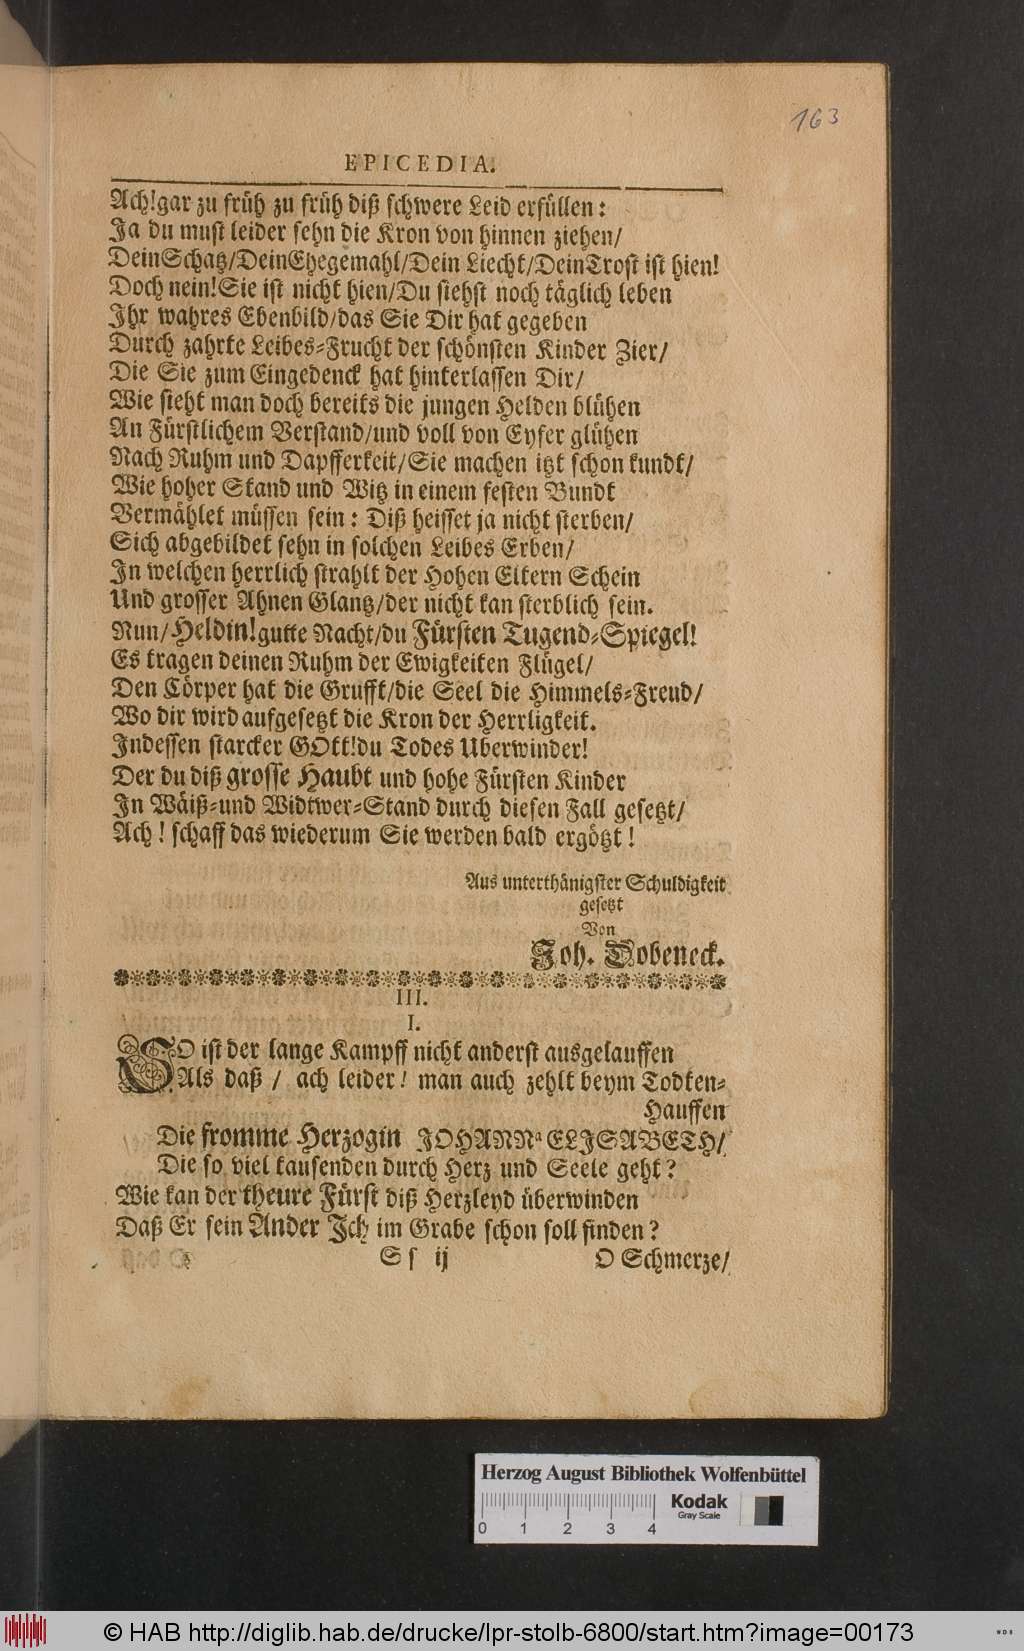 163
EPICEDIA.
Ach! gar zu früh zu früh diß schwere Leid erfüllen:
Ja du must leider sehn die Kron von hinnen ziehen/
Dein Schatz/Dein Ehegemahl/Dein Liecht/Dein Trost ist hien!
Doch nein! Sie ist nicht hien/Du siehst noch täglich leben
Ihr wahres Ebenbild/das Sie Dir hat gegeben
Durch zahrte Leibes-Frucht der schönsten Kinder Zier/
Die Sie zum Eingedenck hat hinterlassen Dir/
Wie sieht man doch bereits die jungen Helden blühen
An Fürstlichem Verstand/und voll von Eyfer glühen
Nach Ruhm und Dapfferkeit/Sie machen itzt schon kundt/
Wie hoher Stand und Witz in einem festen Bundt
Vermählet müssen sein: Diß heisset ja nicht sterben/
Sich abgebildet sehn in solchen Leibes Erben/
In welchen herrlich strahlt der Hohen Eltern Schein
Und grosser Ahnen Glantz/der nicht kan sterblich sein.
Nun/Heldin! gutte Nacht/du Fürsten Tugend-Spiegel!
Es tragen deinen Ruhm der Ewigkeiten Flügel/
Den Cörper hat die Grufft/die Seel die Himmels-Freud/
Wo dir wird aufgesetzt die Kron der Herrligkeit.
Indessen starcker GOtt! du Todes Uberwinder!
Der du diß grosse Haubt und hohe Fürsten Kinder
In Wäiß-und Widtwer-Stand durch diesen Fall gesetzt/
Ach! schaff das wiederum Sie werden bald ergötzt!
Aus unterthänigster Schuldigkeit
gesetzt
Von
Joh. Dobeneck.
III.
I.
SO ist der lange Kampff nicht anderst ausgelauffen
Als daß / ach leider! man auch zehlt beym Todten-
Hauffen
Die fromme Herzogin JOHANNa ELISABETH/
Die so viel tausenden durch Herz und Seele geht?
Wie kan der theure Fürst diß Herzleyd überwinden
Daß Er sein Ander Ich im Grabe schon soll finden?
S s ij
O Schmerze/
Herzog August Bibliothek Wolfenbüttel
0 1 2 3 4
Kodak
Gray Scale
© HAB http://diglib.hab.de/drucke/lpr-stolb-6800/start.htm?image=00173